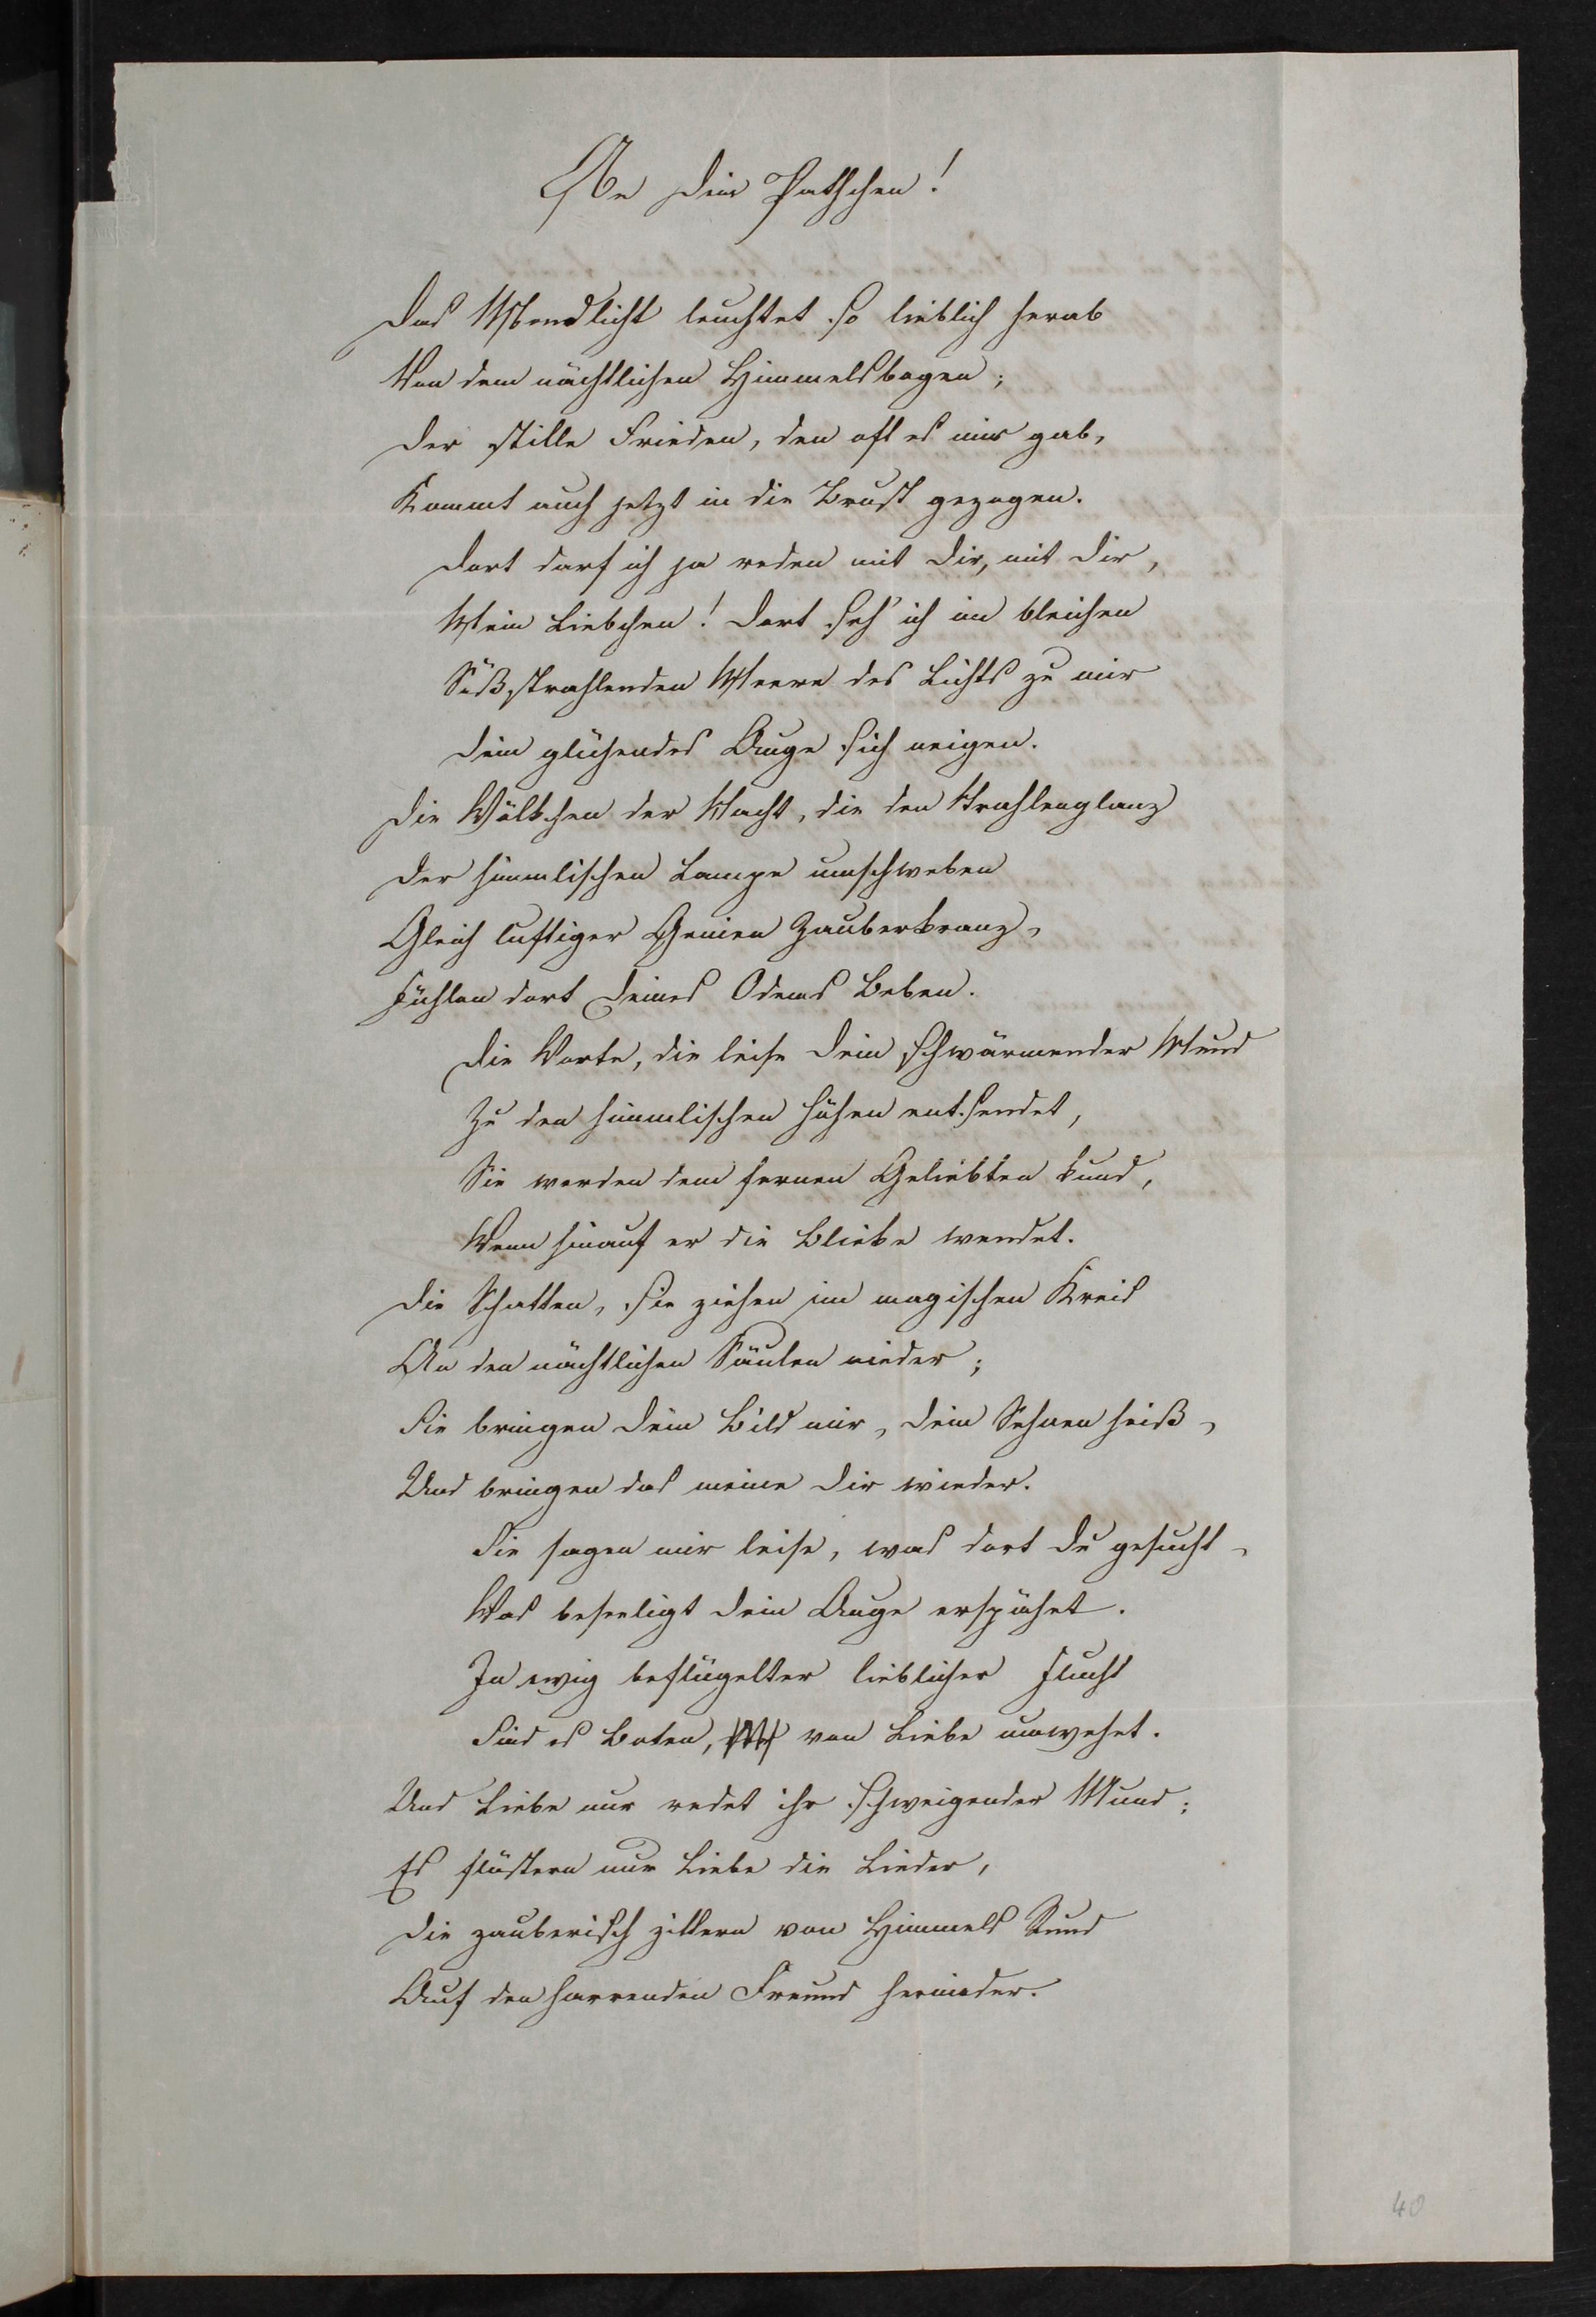 An dein Pathchen!
Das Mondlicht leuchtet so lieblich herab
Von dem nächtlichen Himmelsbogen;
Der stille Frieden, den oft es mir gab,
Kommt auch jetzt in die Brust gezogen.
Dort darf ich ja reden mit Dir, mit Dir,
Mein Liebchen! Dort seh' ich im bleichen
Süßstrahlenden Meere des Lichts zu mir
Dein glühendes Auge sich neigen.
Die Wölkchen der Nacht, die den Strahlenglanz
Der himmlischen Lampe umschweben
Gleich luftiger Genien Zauberkranz,
Fühlen dort Deines Odems Beben.
Die Worte, die leise Dein schwärmender Mund
Zu den himmlischen Höhen entsendet,
Sie werden dem fernen Geliebten kund,
Wenn hinauf er die Blicke wendet.
Die Schatten, sie ziehen im magischen Kreis
An den nächtlichen Säulen nieder;
Sie bringen Dein Bild mir, Dein Sehnen heiß,
Und bringen das meine Dir wieder.
Sie sagen mir leise, was dort Du gesucht,
Was beseeligt Dein Auge erspähet.
In ewig beflügelter lieblicher Flucht
Sind es Boten, von Liebe umwehet.
Und Liebe nur redet ihr schweigender Mund;
Es flüstern nur Liebe die Lieder,
Die zauberisch zittern von Himmels Rund
Auf den harrenden Freund hernieder.
40